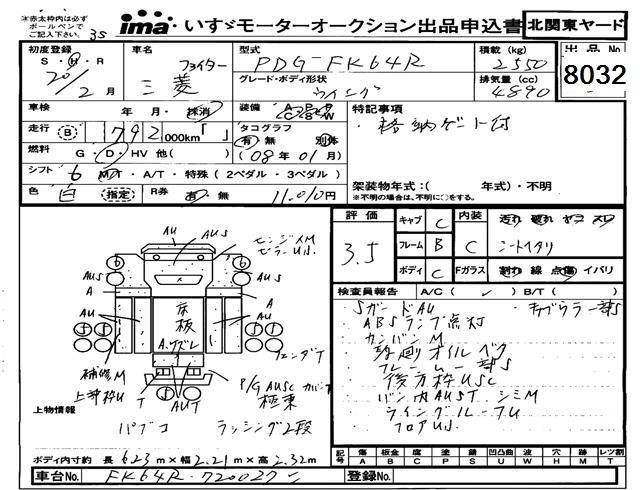 ※赤太枠内は必ず
ボールペンで
ご記入下さい。
3S
ima いすゞモーターオークション出品申込書 北関東ヤード
初度登録 S・H・R 20年 2月
車名 三菱 ファイター
型式 PDG-FK64R
積載 (kg) 2550
出品No. 8032
グレード・ボディ形状 ウイング
排気量 (cc) 4890
車検 年・月・抹消
装備 A・P・ C・S・W
特記事項
・格納ゲート付
走行 B 792 000km「 」
タコグラフ 有・無 別体
燃料 G・D・HV 他( )
(08年01月)
シフト 6 MT・A/T・特殊(2ペダル・3ペダル)
架装物年式:( 年式)・不明
※不明の場合は、不明に○をする。
色 白 (指定) R券 有・無 11,010円
評価 3.5
キャブ C 内装 C 汚れ 破れ ヤコ スレ
フレーム B シートヘタリ
ボディ C Fガラス 割れ 線 点傷 イバリ
検査員報告 A/C( ✓ ) B/T( )
SガードAU
ABSランプ点灯
カンバンM
フレーム一部S
後方枠USC
バン内AUST シミM
ウイングルーフU
フロアUS
AU
AUS
6
AUS
A
AU
床板
A.ササクレ
フェンダT
補修M
上部枠U
T
AUT
P/G AUSC カバー
極東
上物情報
パブコ
ラッシング2段
ボディ内寸約 長 6.23m×幅 2.21m×高 2.32m
記号 傷 A 板金 B 腐 C 塗 P 錆 S 凹凸曲 U 波 W 穴 H 跡 M レツ割 T
車台No. FK64R-720027
登録No.